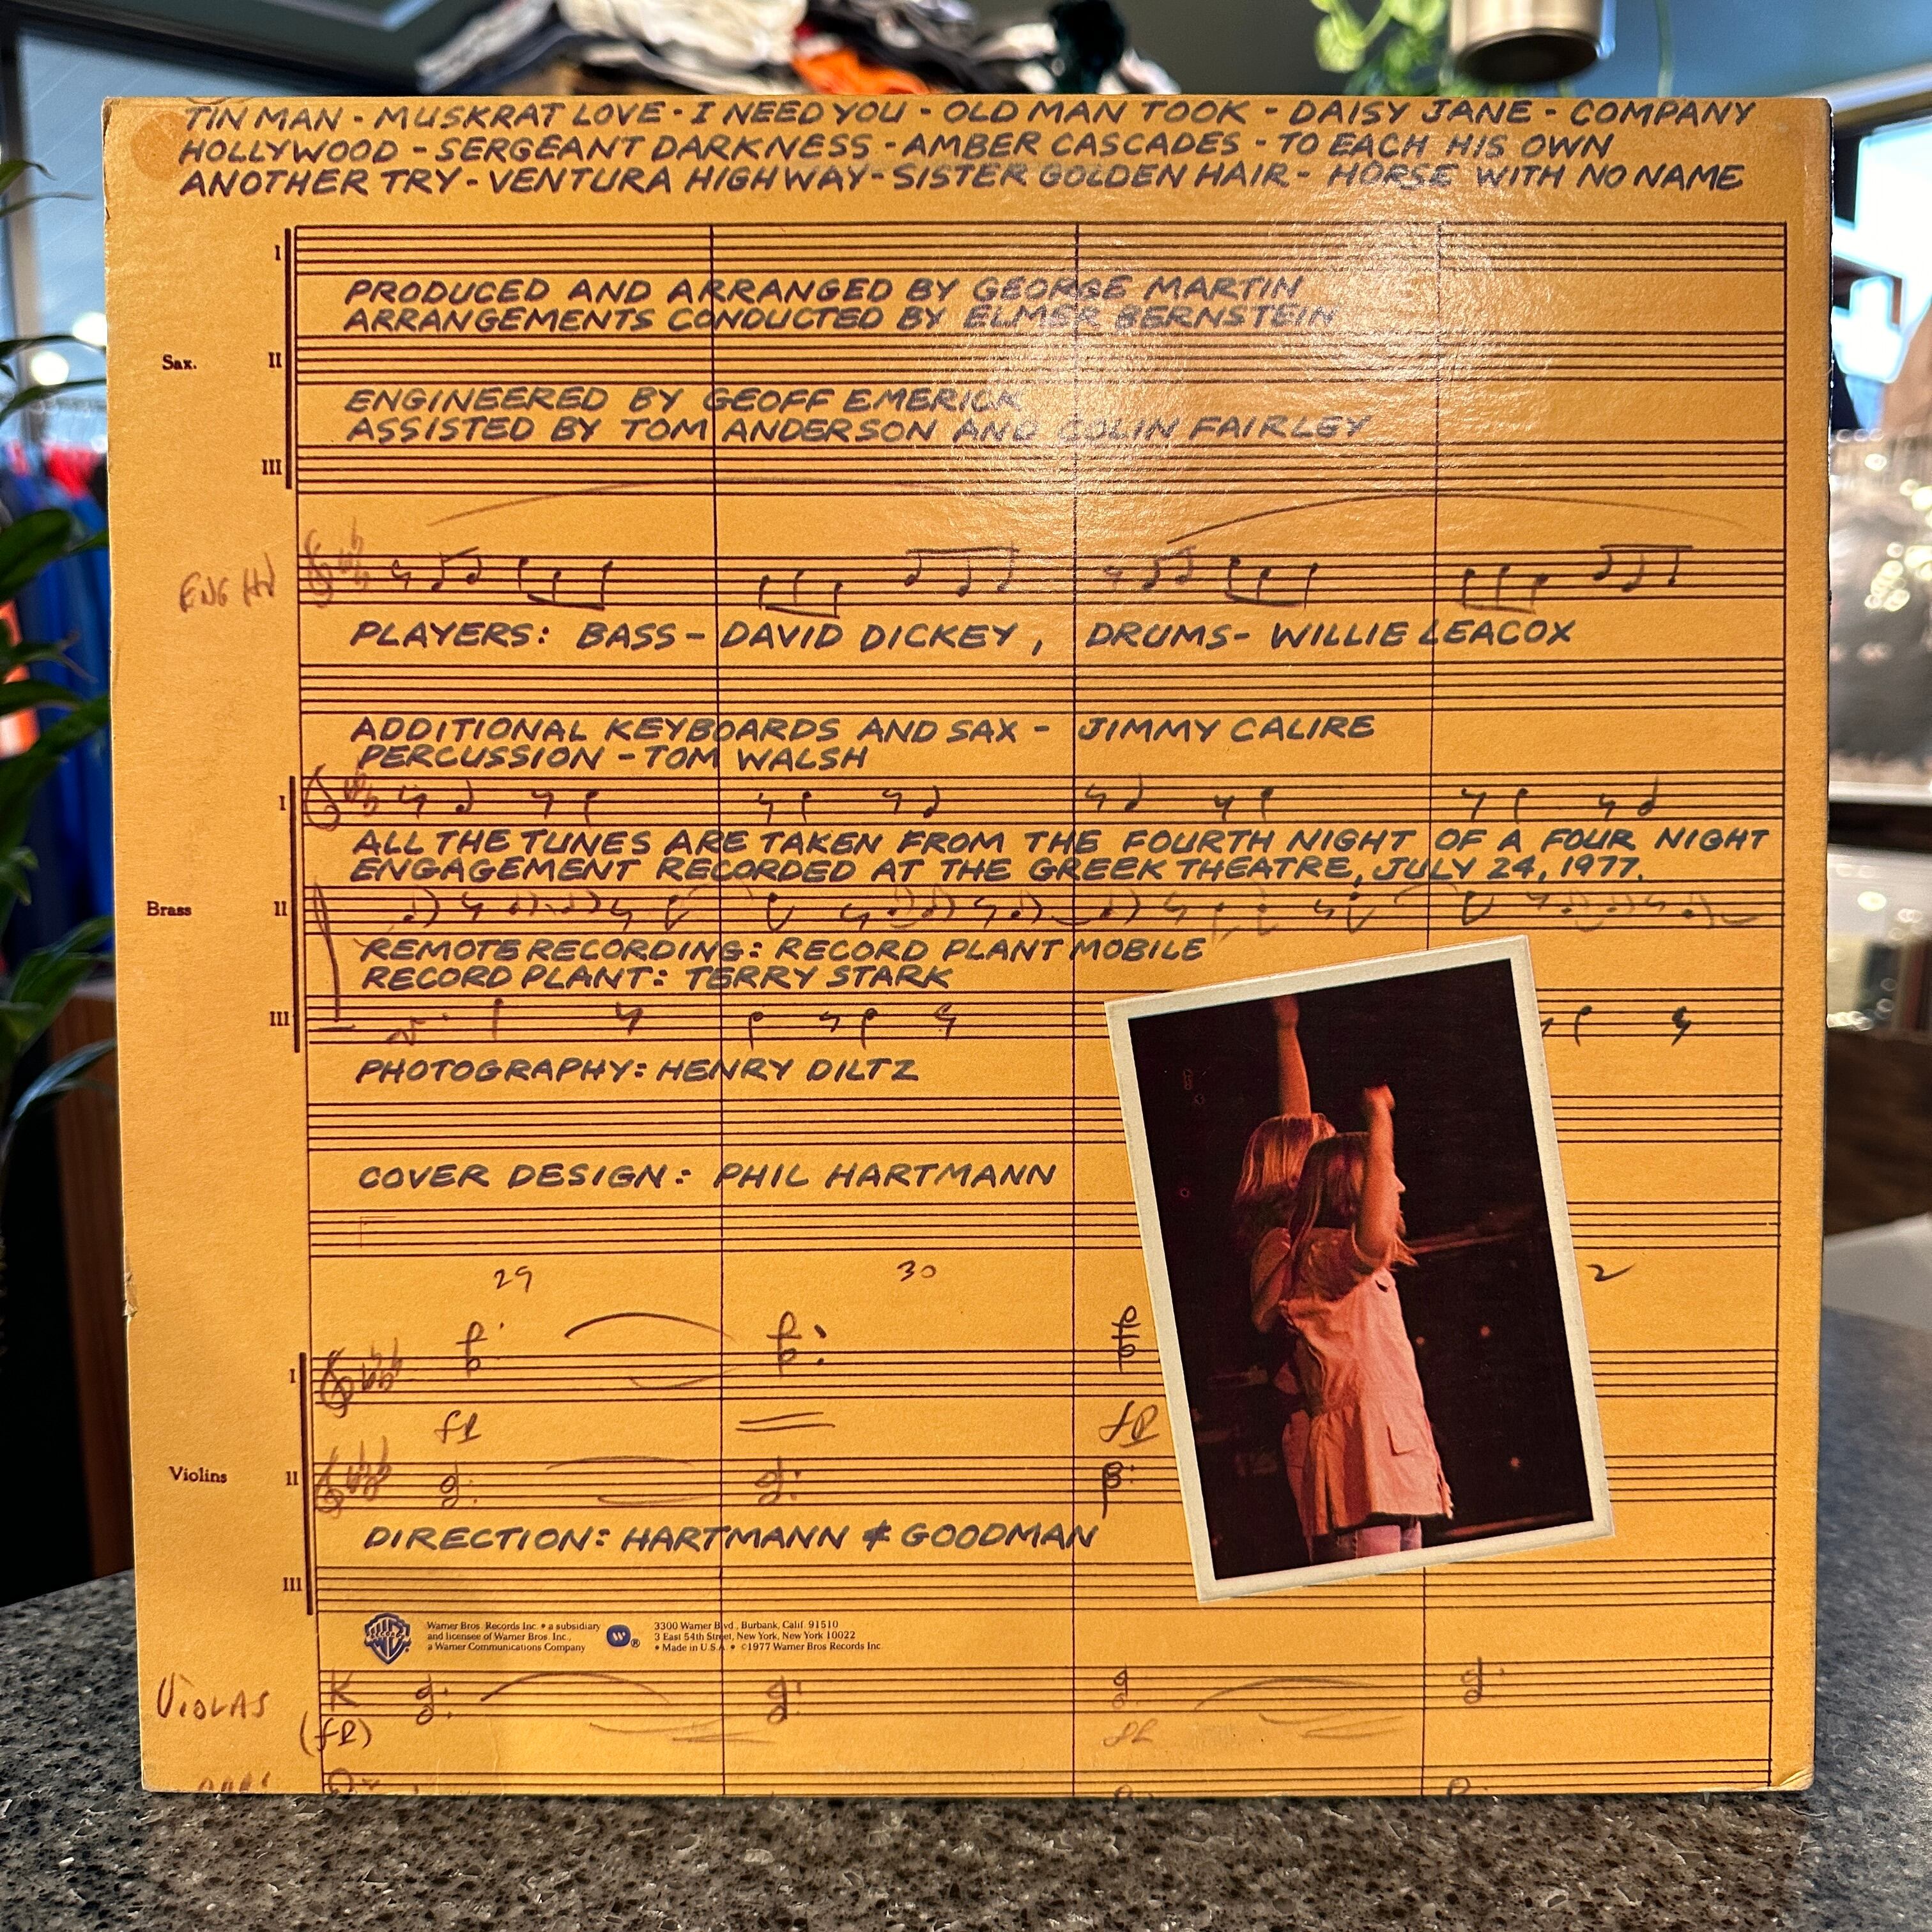 TIN MAN - MUSKRAT LOVE - I NEED YOU - OLD MAN TOOK - DAISY JANE - COMPANY
HOLLYWOOD - SERGEANT DARKNESS - AMBER CASCADES - TO EACH HIS OWN
ANOTHER TRY - VENTURA HIGHWAY - SISTER GOLDEN HAIR - HORSE WITH NO NAME
I
PRODUCED AND ARRANGED BY GEORGE MARTIN
ARRANGEMENTS CONDUCTED BY ELMER BERNSTEIN
Sax. II
ENGINEERED BY GEOFF EMERICK
ASSISTED BY TOM ANDERSON AND COLIN FAIRLEY
III
ENG HN
PLAYERS: BASS - DAVID DICKEY, DRUMS - WILLIE LEACOX
ADDITIONAL KEYBOARDS AND SAX - JIMMY CALIRE
PERCUSSION - TOM WALSH
I
ALL THE TUNES ARE TAKEN FROM THE FOURTH NIGHT OF A FOUR NIGHT
ENGAGEMENT RECORDED AT THE GREEK THEATRE, JULY 24, 1977.
Brass II
REMOTE RECORDING: RECORD PLANT MOBILE
RECORD PLANT: TERRY STARK
III
PHOTOGRAPHY: HENRY DILTZ
COVER DESIGN: PHIL HARTMANN
29 30 2
I
fp fp
Violins II
DIRECTION: HARTMANN & GOODMAN
III
Warner Bros. Records Inc. • a subsidiary
and licensee of Warner Bros. Inc.,
a Warner Communications Company
®
3300 Warner Blvd., Burbank, Calif. 91510
3 East 54th Street, New York, New York 10022
• Made in U.S.A. • ©1977 Warner Bros Records Inc.
VIOLAS
(fp) fp